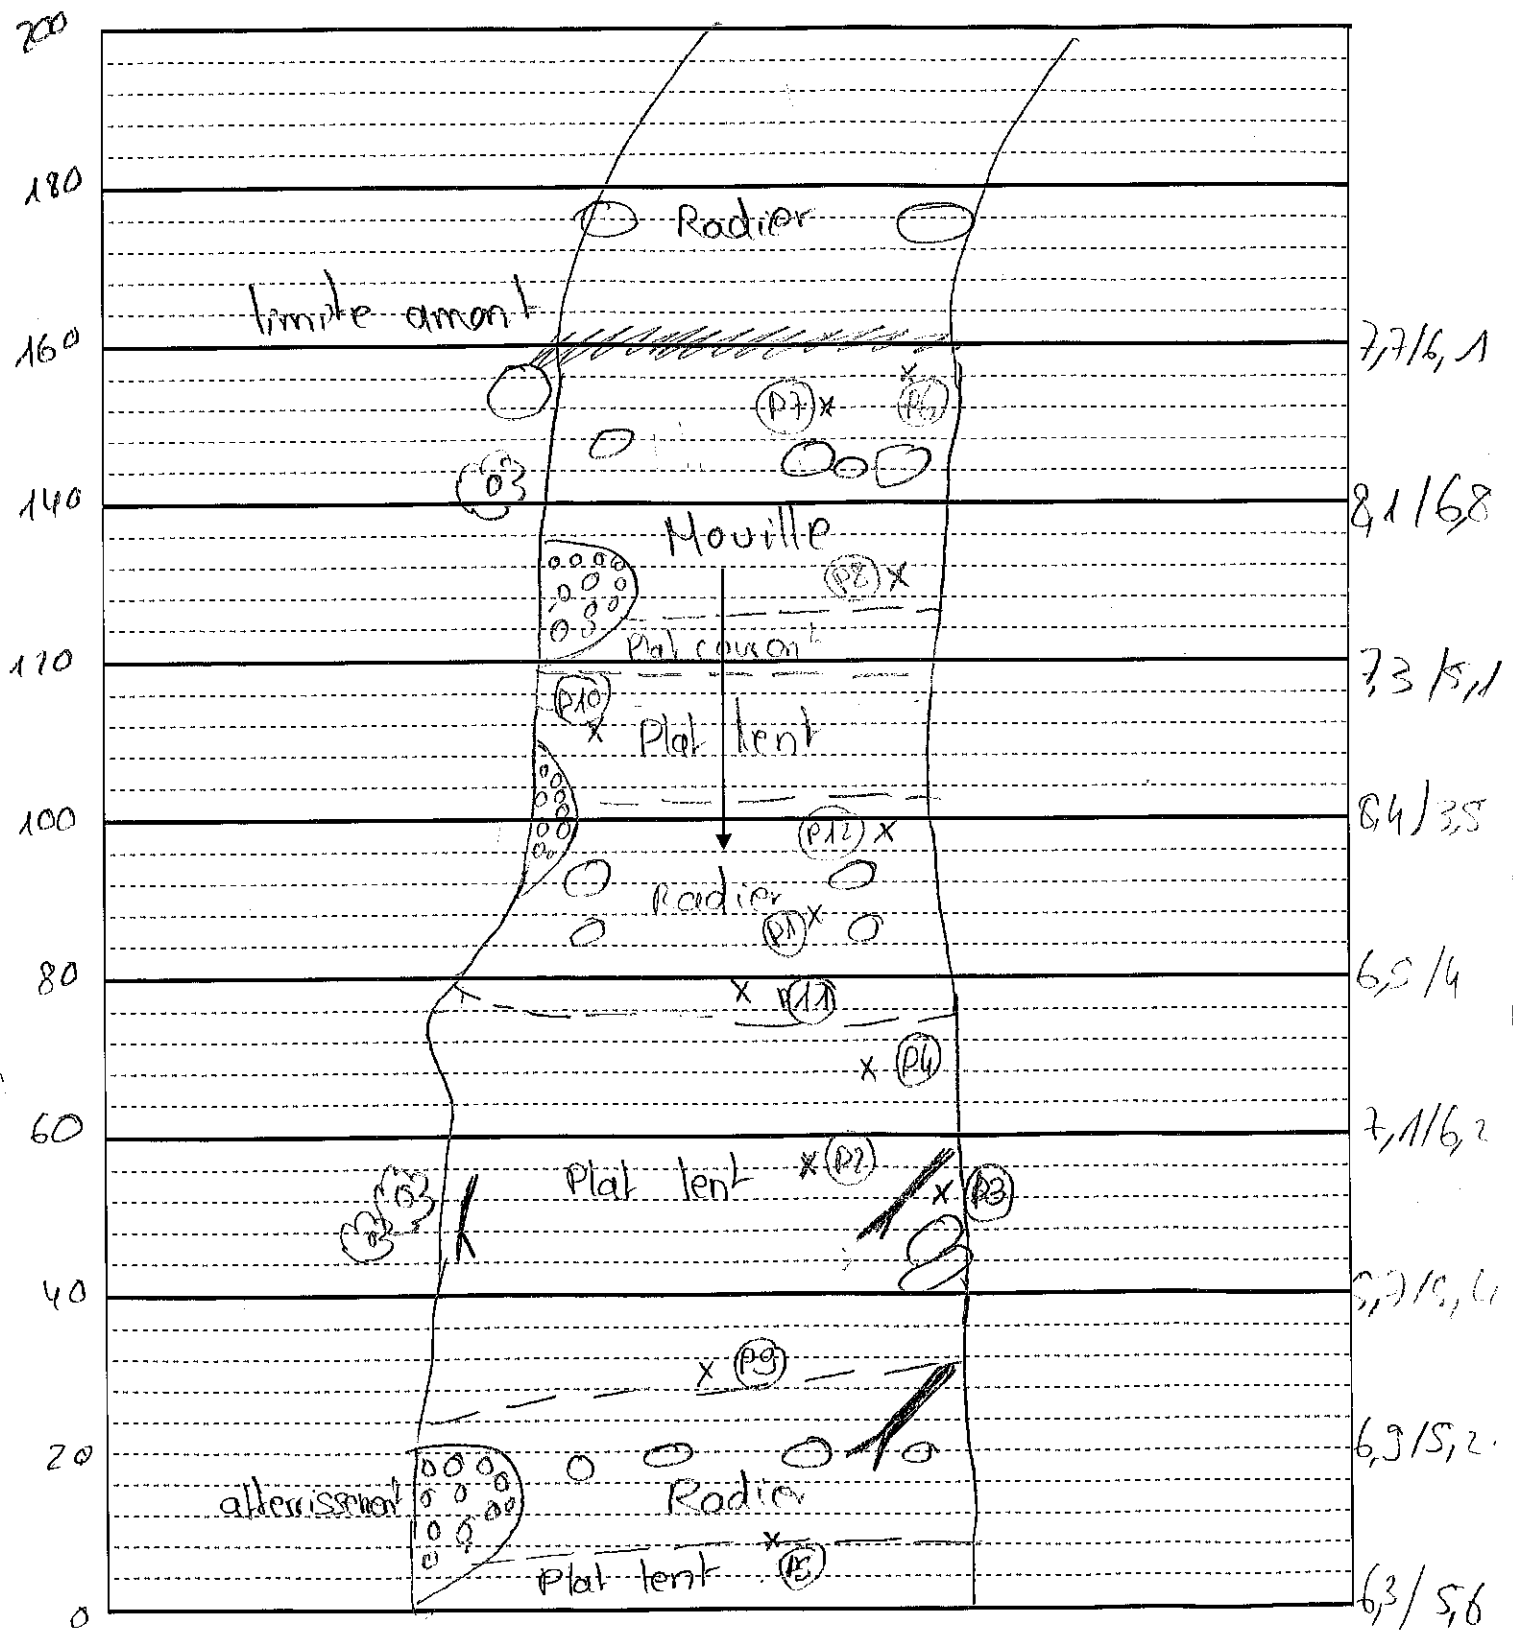 200
180
Radier
limite amont
160
7,7/6,1
P7 P6
140
8,1/6,8
Mouille
P8
Plat courant
120
7,3/5,1
P10
Plat lent
100
P12
Radier
P1
80
11
P4
60
7,1/6,2
Plat lent P2
P3
40
P9
20
6,9/5,2
atterrissement Radier
Plat lent P5
0
6,3/5,6